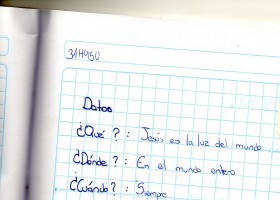 Datos
¿Qué? : Jesús es la luz del mundo.
¿Dónde? : En el mundo entero
¿Cuándo? : Siempre